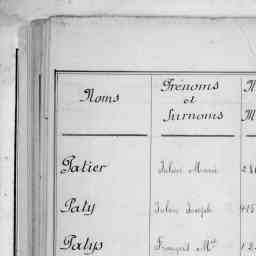 Noms
Prénoms
et
Surnoms
N
M
Patier Julien Marie 28
Paty Julien Joseph 415
Patys François Mel 12